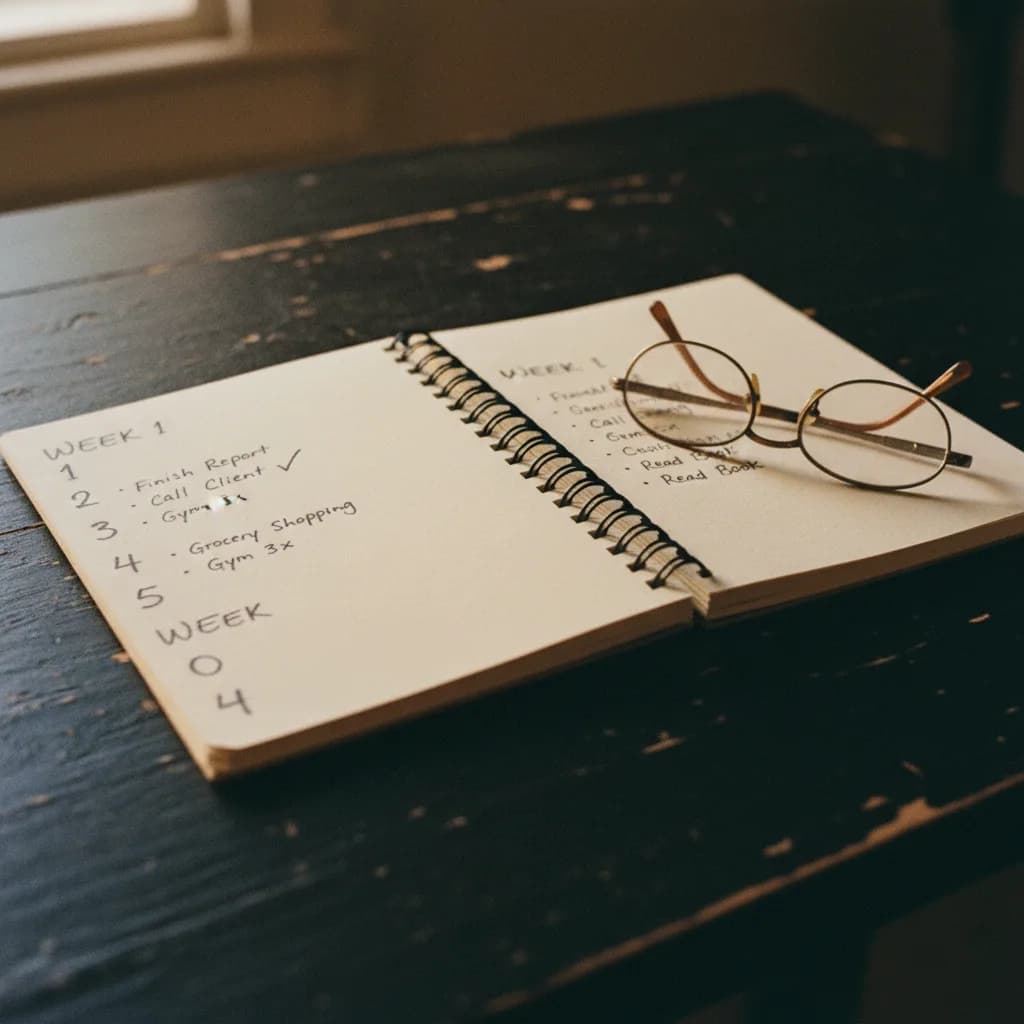 WEEK 1
1
2 · Finish Report
· Call Client ✓
3 · Gym
4 · Grocery Shopping
· Gym 3x
5
WEEK
0
4
WEEK 1
·
·
· Call
· Gym
·
· Read Book
· Read Book